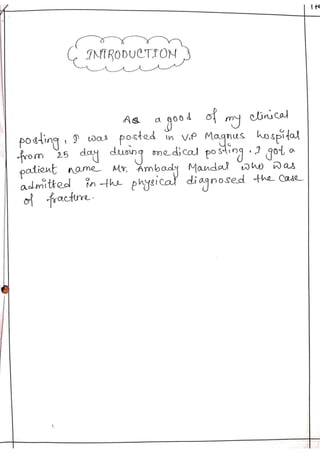 INTRODUCTION
As a good of my clinical
posting, I was posted in V.P Magnus hospital
from 25 day during medical posting. I got a
patient name Mr. Ambady Mandal who was
admitted in the physical diagnosed the case
of fracture.